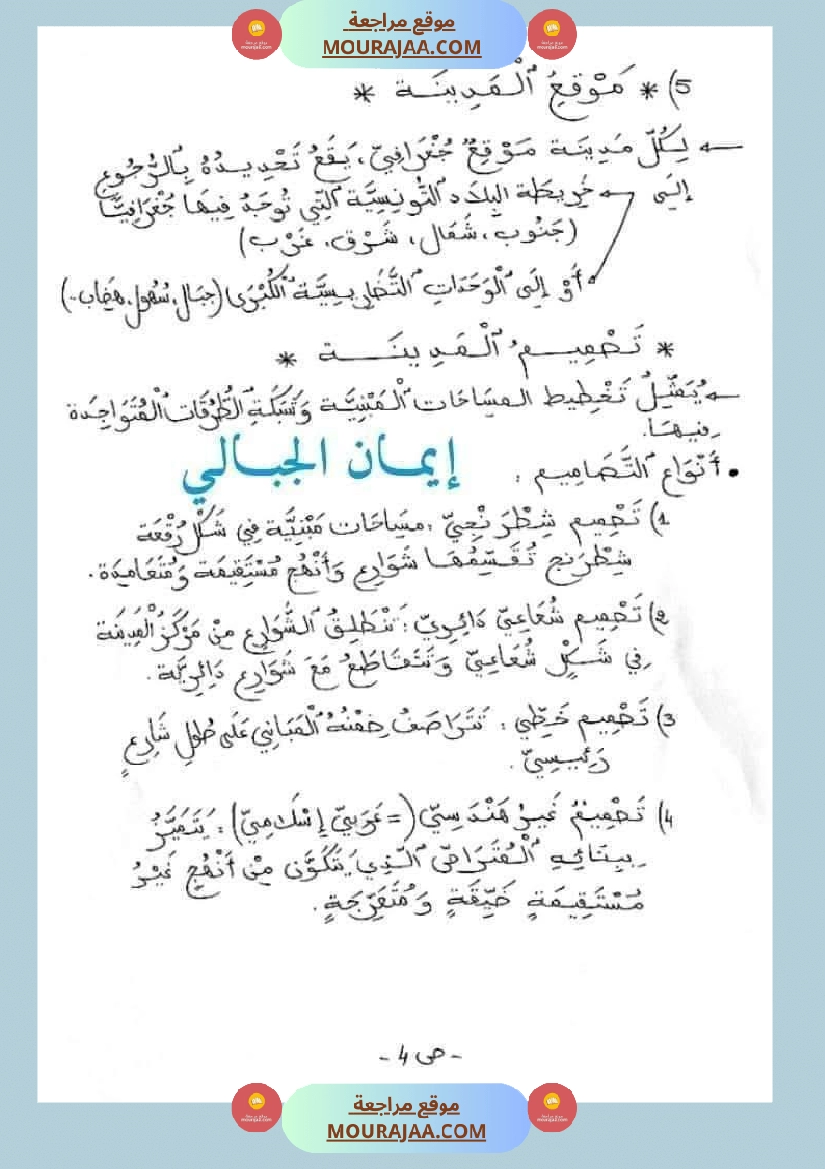 موقع مراجعة
MOURAJAA.COM
5) * مَوْقِعُ ٱلْمَدِينَة *
← لِكُلِّ مَدِينَة مَوْقِعٌ جُغْرَافِيّ، يَقَعُ تَحْدِيدُهُ بِٱلرُّجُوعِ
إِلَى ← خَرِيطَة البِلَاد ٱلتُّونِسِيَّة ٱلَّتِي تُوجَدُ فِيهَا جُغْرَافِيًّا
(جَنُوب، شَمَال، شَرْق، غَرْب)
أَوْ إِلَى ٱلْوَحَدَاتِ ٱلتَّضَارِيسِيَّة ٱلْكُبْرَى (جِبَال، سُهُول، هِضَاب..)
* تَصْمِيمُ ٱلْمَدِينَة *
← يُمَثِّلُ تَخْطِيط المِسَاحَات ٱلْمَبْنِيَّة وَشَبَكَةِ ٱلطُّرُقَات ٱلْمُتَوَاجِدَة
فِيهَا.
• أَنْوَاع ٱلتَّصَامِيم :
إيمان الجبالي
1) تَصْمِيم شِطْرَنْجِيّ : مِسَاحَات مَبْنِيَّة فِي شَكْلِ رُقْعَة
شِطْرَنج تُقَسِّمُهَا شَوَارِع وَأَنْهُج مُسْتَقِيمَة وَمُتَعَامِدَة.
2) تَصْمِيم شُعَاعِيّ دَائِرِيّ : تَنْطَلِقُ ٱلشَّوَارِع مِنْ مَرْكَز ٱلْمَدِينَة
فِي شَكْلٍ شُعَاعِيّ وَتَتَقَاطَعُ مَعَ شَوَارِع دَائِرِيَّة.
3) تَصْمِيم خَطِّي : تَتَرَاصَفُ ضِمْنَهُ ٱلْمَبَانِي عَلَى طُولِ شَارِعٍ
رَئِيسِيّ.
4) تَصْمِيمٌ غَيْرُ هَنْدَسِيّ (= عَرَبِيّ إِسْلَامِيّ) : يَتَمَيَّزُ
بِبِنَائِهِ ٱلْمُتَرَاصّ ٱلَّذِي يَتَكَوَّن مِنْ أَنْهُجٍ غَيْرُ
مُسْتَقِيمَةٍ ضَيِّقَةٍ وَمُتَعَرِّجَةٍ.
- ص 4 -
موقع مراجعة
MOURAJAA.COM